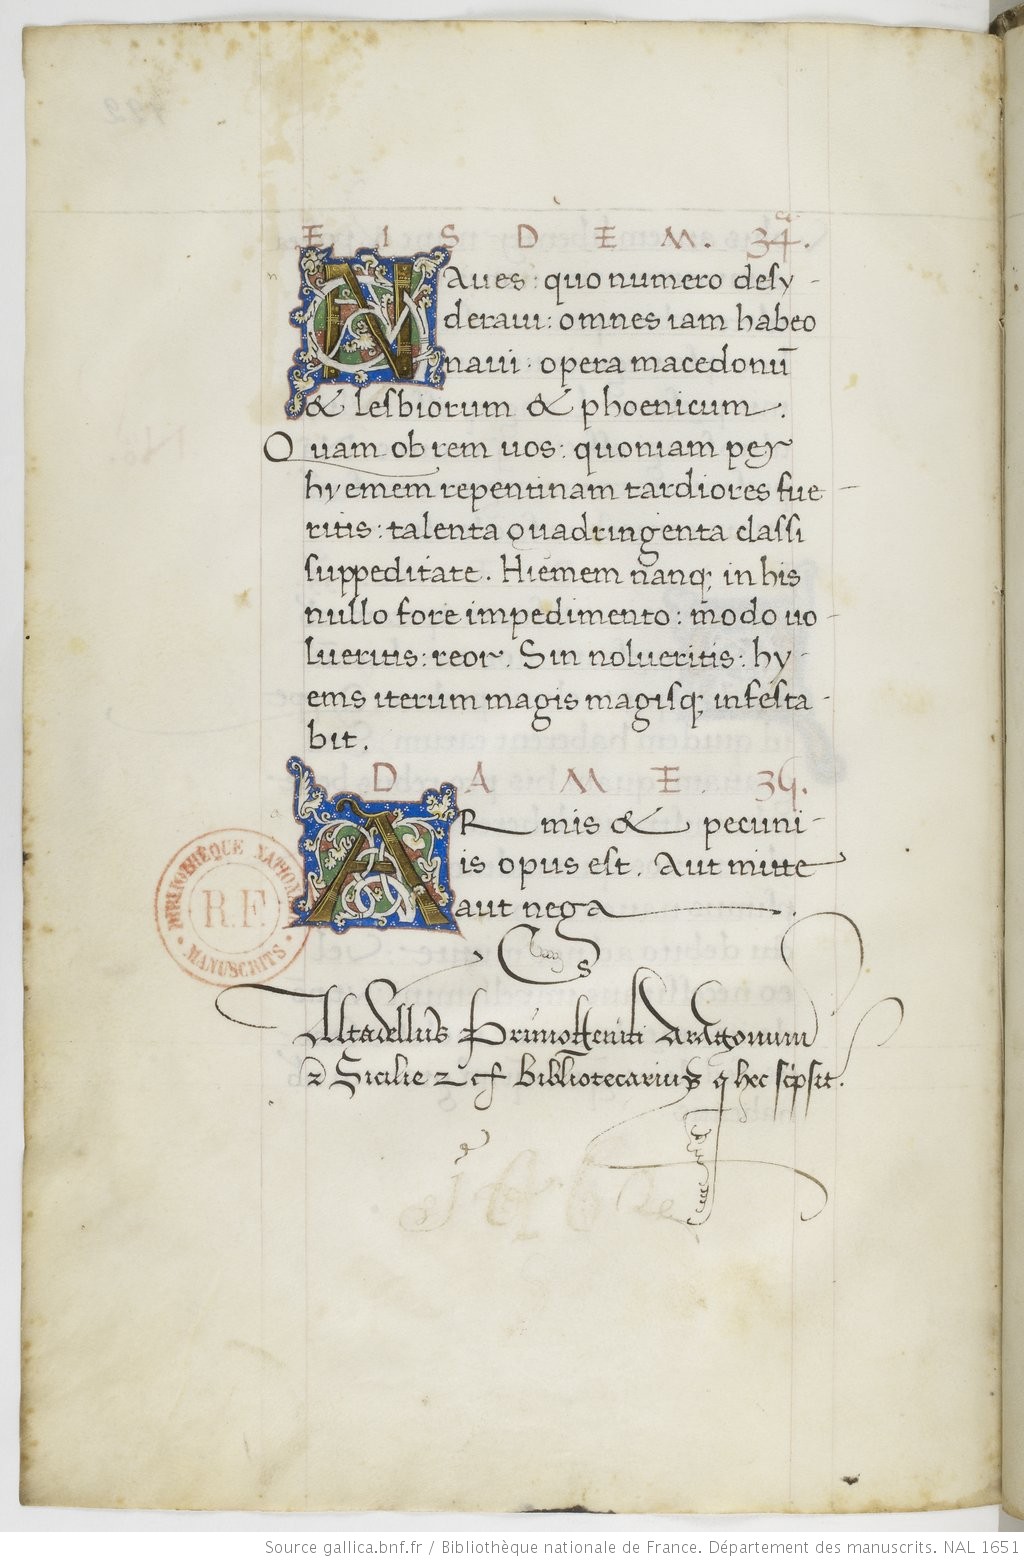 EISDEM. 34ª.
NAVES: quo numero desy-
deravi: omnes iam habeo
navi. opera macedonū
& lesbiorum & phoenicum.
Quam ob rem vos: quoniam per
hyemem repentinam tardiores fue-
ritis: talenta quadringenta classi
suppeditate. Hiemem nanq; in his
nullo fore impedimento: modo vo-
lueritis: reor. Sin nolueritis: hy-
ems iterum magis magisq; infesta-
bit.
DAME. 35.
ARmis & pecuni-
is opus est. Aut mitte
aut nega
BIBLIOTHÈQUE NATIONALE
R.F.
MANUSCRITS
Aragonum
⁊ Sicilie ⁊ cꝭ Bibliotecarius ꝗ hec scͥpsit.
Source gallica.bnf.fr / Bibliothèque nationale de France. Département des manuscrits. NAL 1651